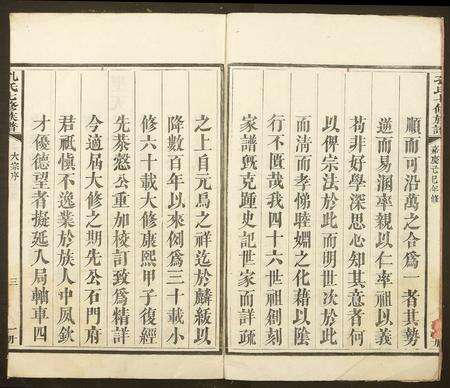 孔氏七修族譜
嘉慶己巳年修
順而可沿萬之合爲一者其勢
逆而易溯率親以仁率祖以義
苟非好學深思心知其意者何
以俾宗法於此而明世次於此
而清而孝悌睦婣之化藉以隆
行不匱哉我四十六世祖創刻
家譜旣克踵史記世家而詳疏
之上自元鳥之祥迄於麟紱以
降數百年以來例爲三十載小
修六十載大修康熙甲子復經
先恭慤公重加校訂致爲精詳
今適屆大修之期先公石門府
君祗愼不逸業於族人中夙欽
才優德望者擬延入局輶車四
孔氏七修族譜
大宗序
三